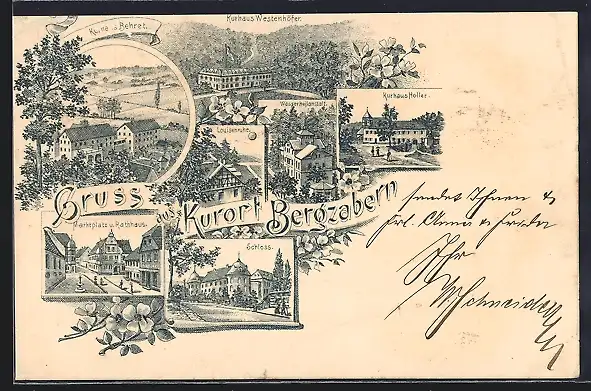 Kurhaus Westenhöfer.
Wasserheilanstalt.
Kurhaus Holler.
Louisenruhe.
Gruss aus Kurort Bergzabern
Marktplatz u. Rathhaus.
Schloss.
sendet Ihnen &
Frl. Anna &
Ihr
Schneider